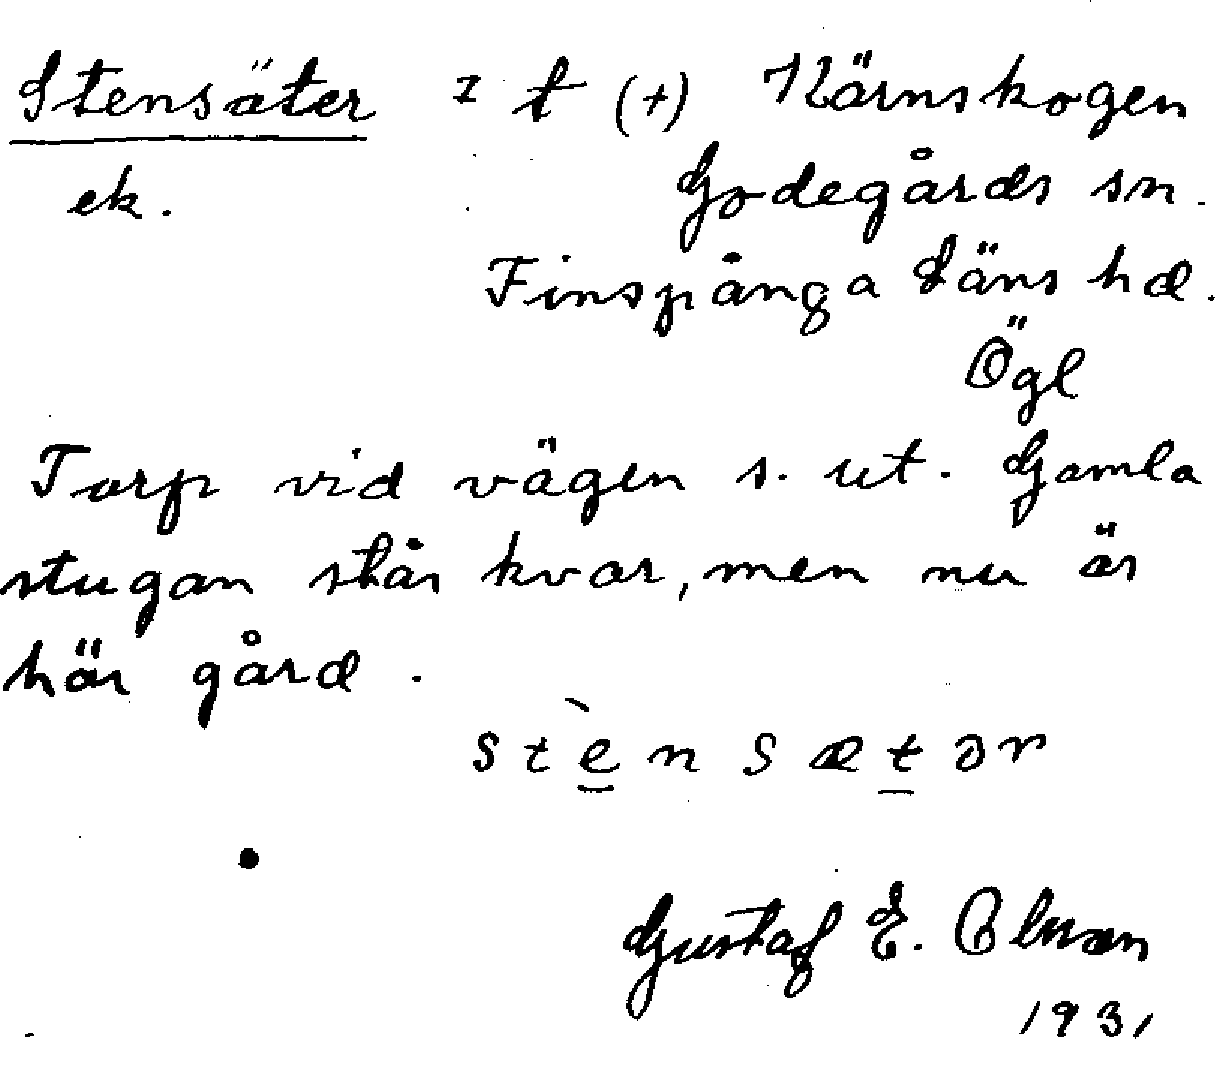 Stensäter I t (+) Kärnskogen
ek. Godegårds sn.
Finspånga läns hd.
Ögl
Torp vid vägen s. ut. Gamla
stugan står kvar, men nu är
här gård.
stènsætər
Gustaf E. Olsson
1931